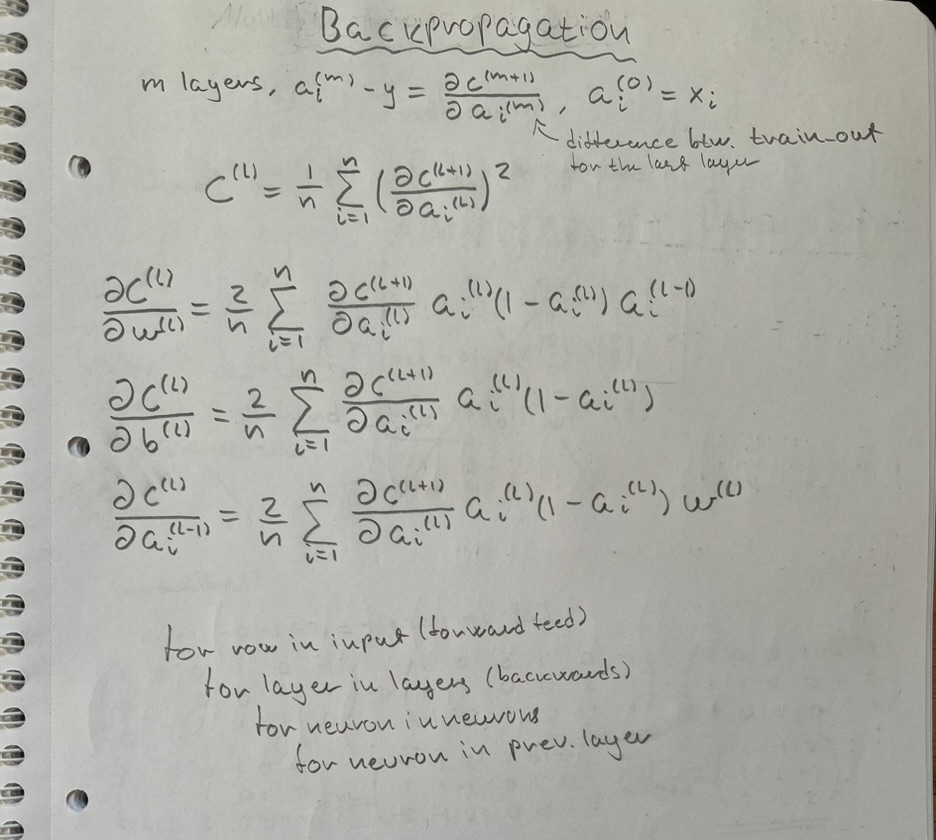 Backpropagation
m layers, aᵢ⁽ᵐ⁾ - y = ∂C⁽ᵐ⁺¹⁾/∂aᵢ⁽ᵐ⁾, aᵢ⁽⁰⁾ = xᵢ
difference btw. train-out
for the last layer
C⁽ᴸ⁾ = 1/n ∑ᵢ₌₁ⁿ (∂C⁽ᴸ⁺¹⁾/∂aᵢ⁽ᴸ⁾)²
∂C⁽ᴸ⁾/∂w⁽ᴸ⁾ = 2/n ∑ᵢ₌₁ⁿ ∂C⁽ᴸ⁺¹⁾/∂aᵢ⁽ᴸ⁾ aᵢ⁽ᴸ⁾(1 - aᵢ⁽ᴸ⁾) aᵢ⁽ᴸ⁻¹⁾
∂C⁽ᴸ⁾/∂b⁽ᴸ⁾ = 2/n ∑ᵢ₌₁ⁿ ∂C⁽ᴸ⁺¹⁾/∂aᵢ⁽ᴸ⁾ aᵢ⁽ᴸ⁾(1 - aᵢ⁽ᴸ⁾)
∂C⁽ᴸ⁾/∂aᵢ⁽ᴸ⁻¹⁾ = 2/n ∑ᵢ₌₁ⁿ ∂C⁽ᴸ⁺¹⁾/∂aᵢ⁽ᴸ⁾ aᵢ⁽ᴸ⁾(1 - aᵢ⁽ᴸ⁾) w⁽ᴸ⁾
for row in input (forward feed)
for layer in layers (backwards)
for neuron in neurons
for neuron in prev. layer